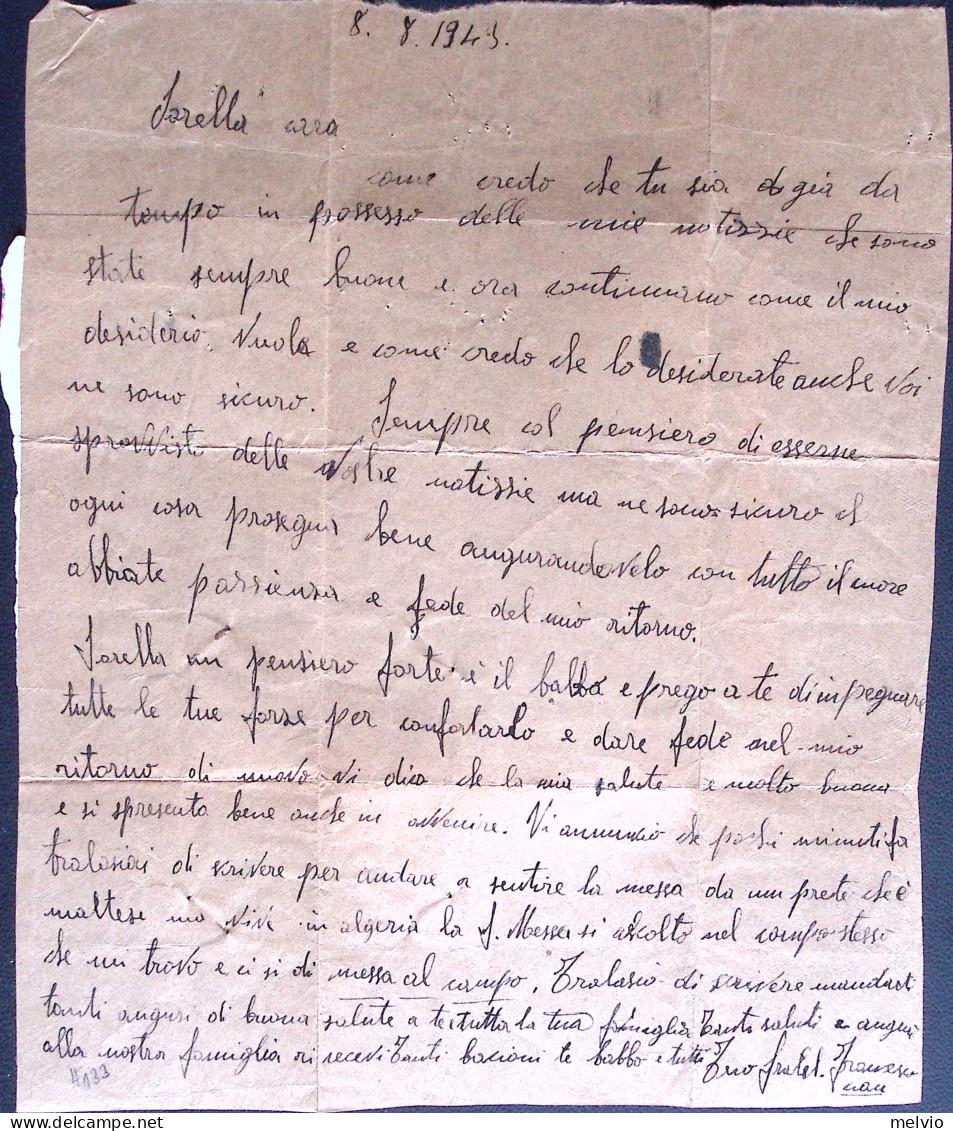 8. 8. 1943.
Sorella cara
come credo che tu sia di già da
tempo in possesso delle mie notizzie che sono
state sempre buone e ora continuano come il mio
desiderio. Vuole e come credo che lo desiderate anche Voi
ne sono sicuro. Sempre col pensiero di esserne
sprovvisto delle vostre notissie ma ne sono sicuro
ogni cosa prosegua bene augurandovelo con tutto il
abbiate passienza e fede del mio ritorno.
Sorella un pensiero forte è il babbo e prego a te di impegnare
tutte le tue forze per confortarlo e dare fede nel mio
ritorno di nuovo vi dico che la mia salute e molto buona
e si spresenta bene anche in avvenire. Vi annuncio che pochi minuti fa
tralasiai di scrivere per andare a sentire la messa da un prete che è
maltese ma vive in algeria la S. Messa si ascolto nel campo stesso
che mi trovo e ci si di messa al campo. Tralasio di scrivere mandarti
tanti auguri di buona salute a te e tutta la tua famiglia Tanti saluti e auguri
alla nostra famiglia ricevi Tanti bacioni te babbo e tutti Tuo fratel. Francesco
4133
melvio